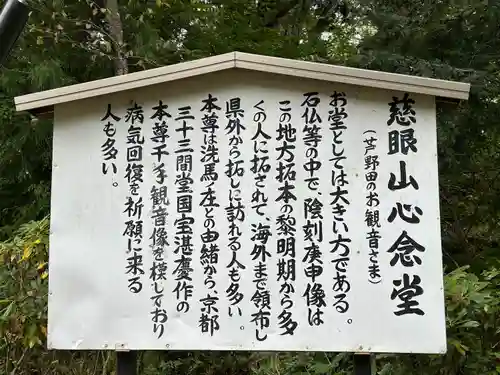 慈眼山心念堂
(芦野田のお観音さま)
お堂としては大きい方である。
石仏等の中で、陰刻庚申像は
この地方拓本の黎明期から多
くの人に拓されて、海外まで領布し
県外から拓しに訪れる人も多い。
本尊は洗馬ノ庄との由緒から、京都
三十三間堂国宝湛慶作の
本尊千手観音像を模しており
病気回復を祈願に来る
人も多い。